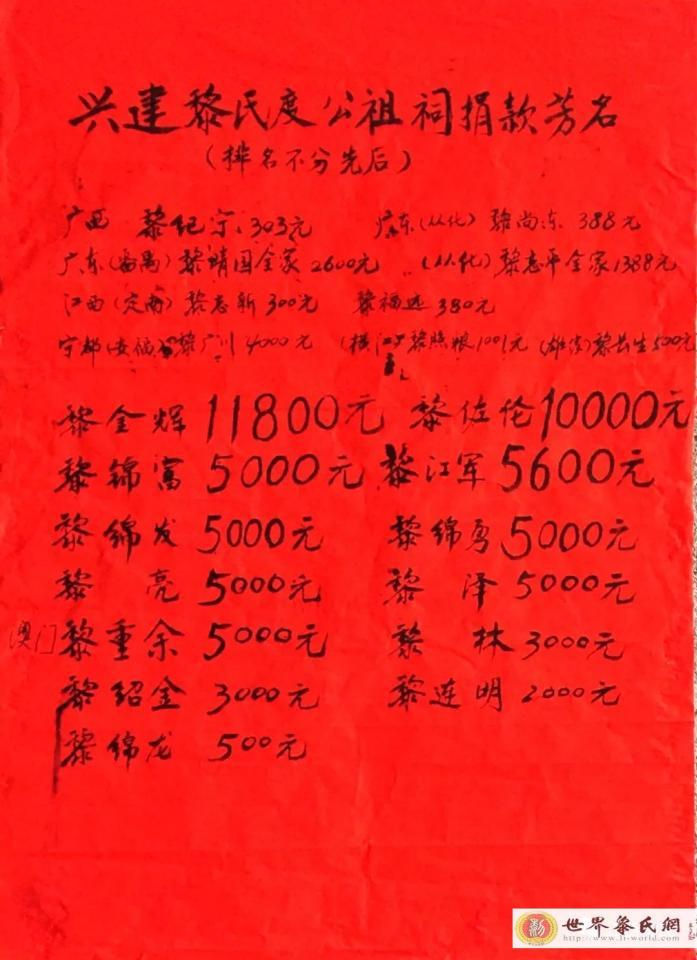 兴建黎氏度公祖祠捐款芳名
（排名不分先后）
广西 黎纪宁：303元 广东（从化）黎尚东 388元
广东（番禺）黎靖国全家2600元 （从化）黎志平全家1388元
江西（定南）黎志新 300元 黎福远 380元
宁都 黎广川 4000元 横江 黎照娘1001元 黎长生500元
黎金辉 11800元 黎佐伦 10000元
黎锦富 5000元 黎江军 5600元
黎锦发 5000元 黎锦勇 5000元
黎亮 5000元 黎泽 5000元
澳门 黎重余 5000元 黎林 3000元
黎绍金 3000元 黎连明 2000元
黎锦龙 500元
世界黎氏網
http://www.li-world.com